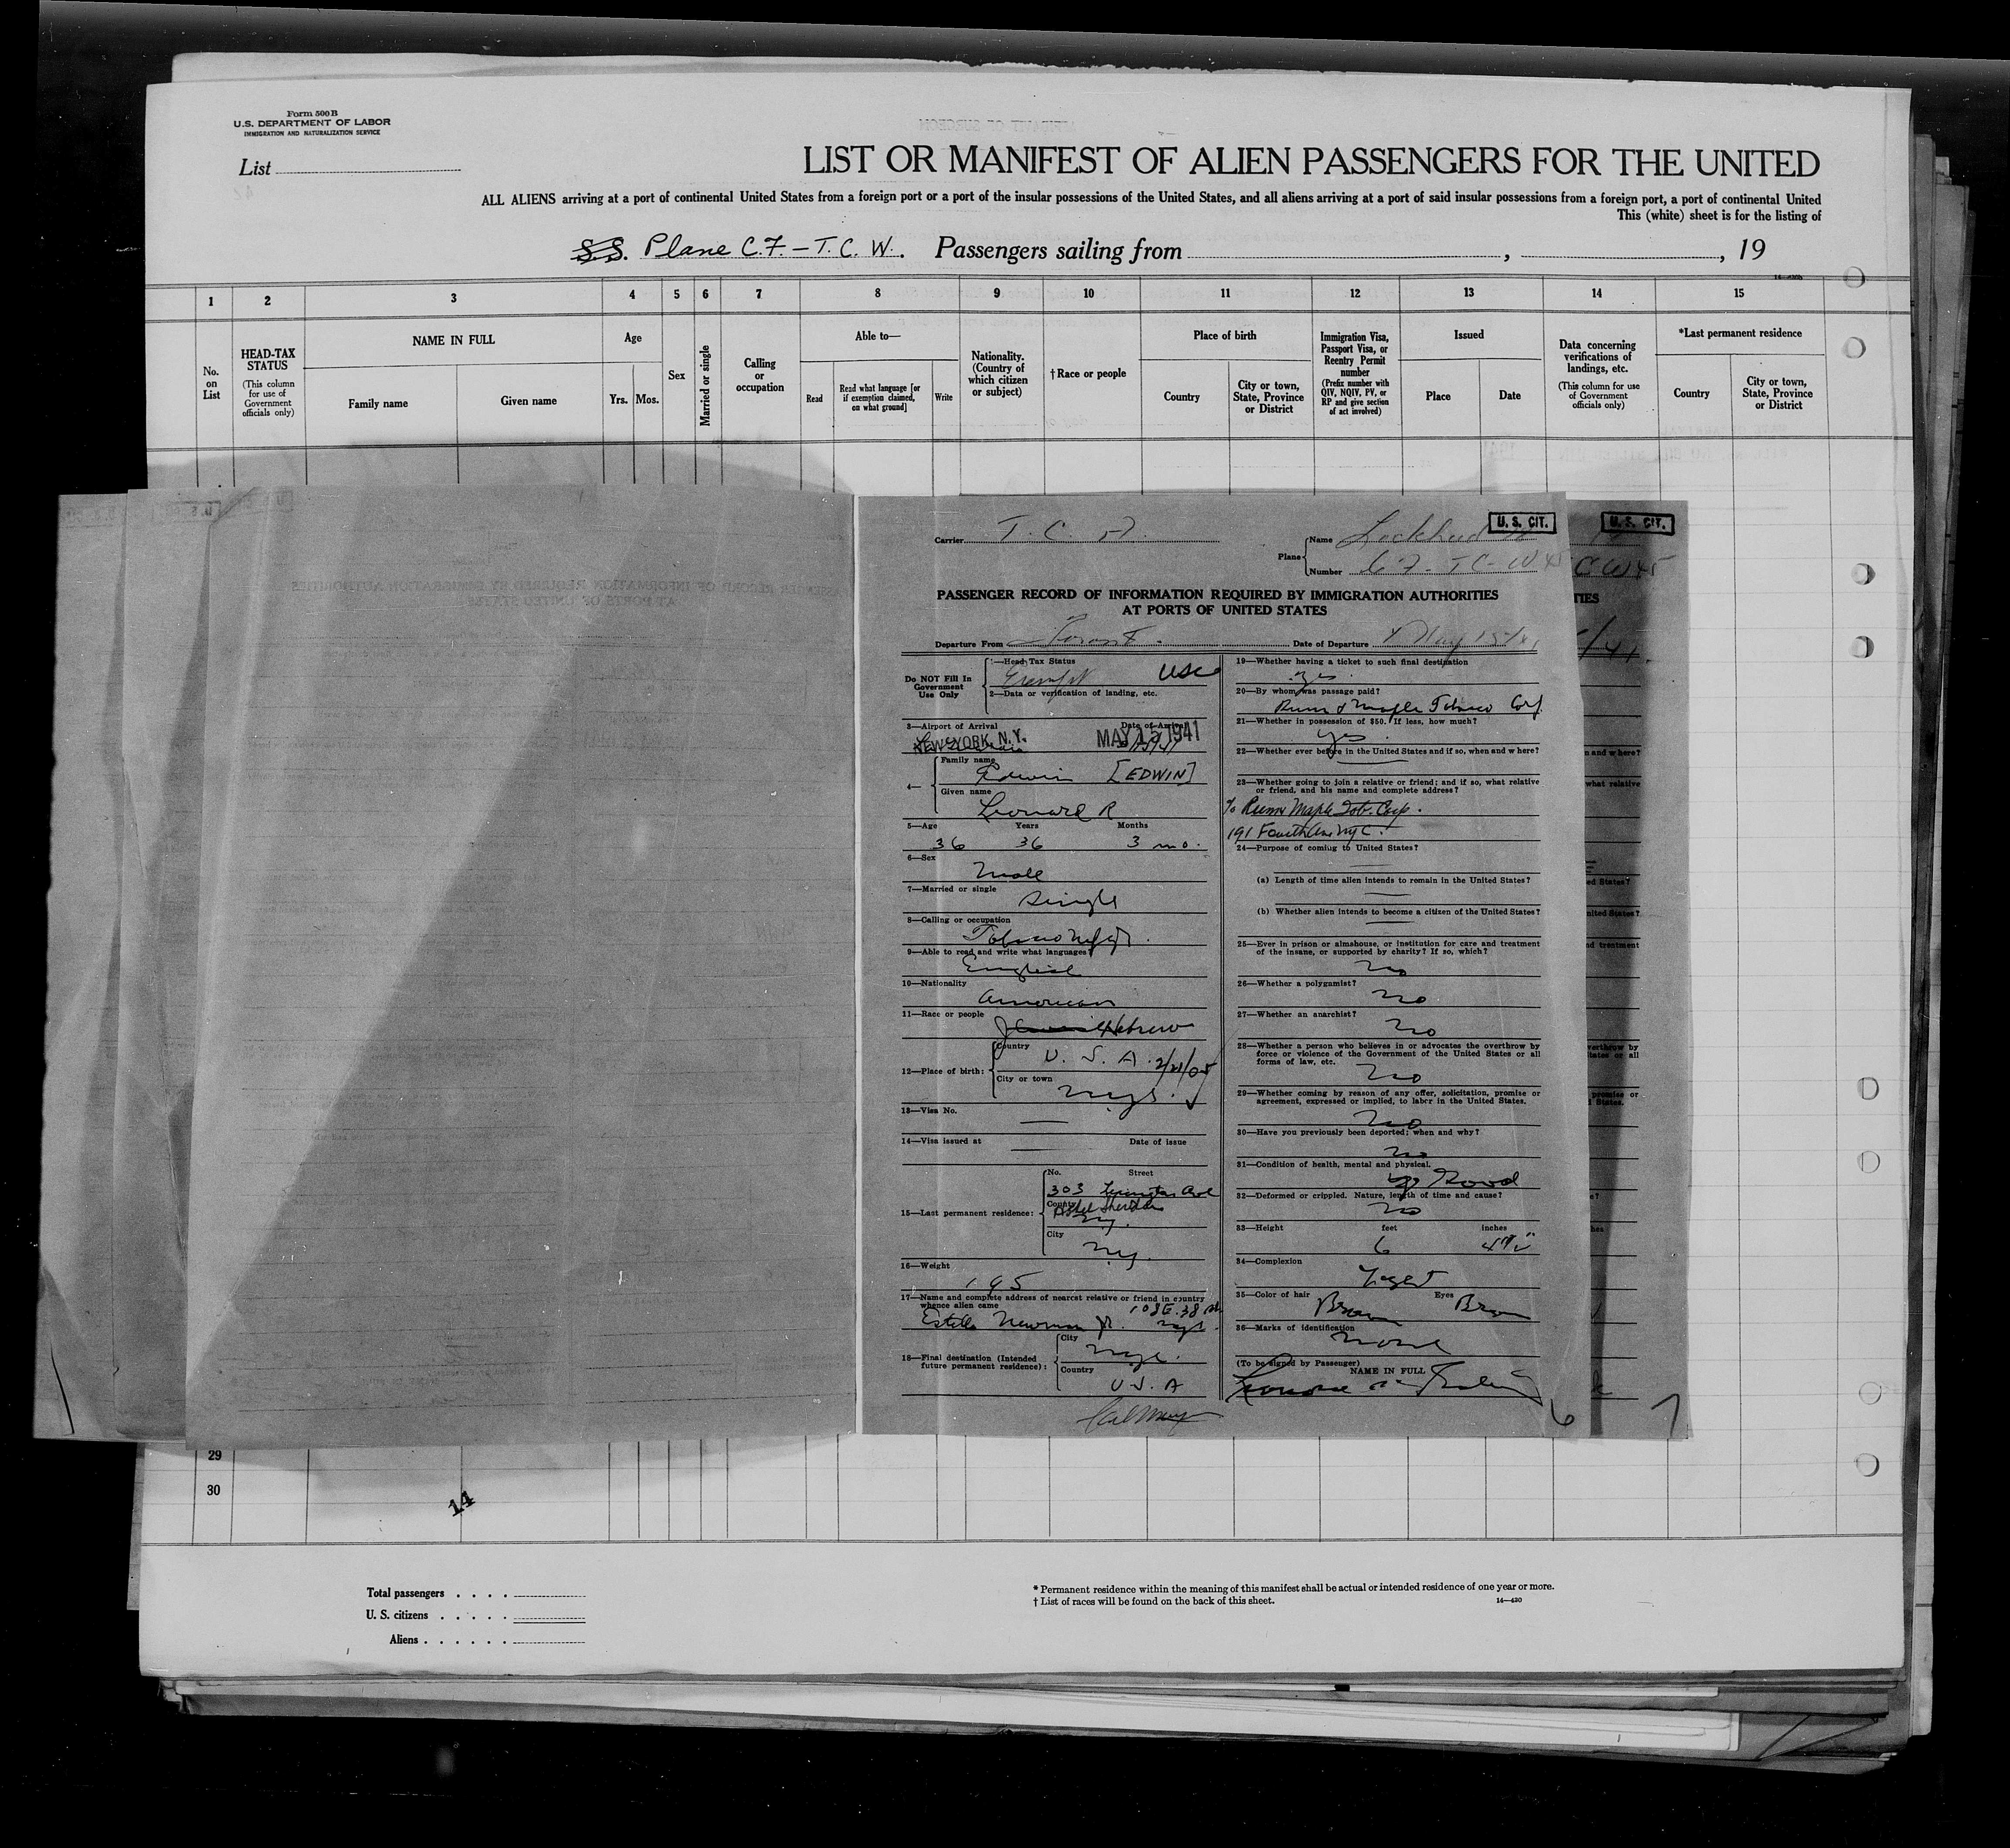 Form 500 B
U.S. DEPARTMENT OF LABOR
IMMIGRATION AND NATURALIZATION SERVICE
List
LIST OR MANIFEST OF ALIEN PASSENGERS FOR THE UNITED
ALL ALIENS arriving at a port of continental United States from a foreign port or a port of the insular possessions of the United States, and all aliens arriving at a port of said insular possessions from a foreign port, a port of continental United
This (white) sheet is for the listing of
S.S. Plane C.F.-T.C.W. Passengers sailing from , , 19
1 2 3 4 5 6 7 8 9 10 11 12 13 14 15
No. on List
HEAD-TAX STATUS
(This column for use of Government officials only)
NAME IN FULL
Family name
Given name
Age
Yrs. Mos.
Sex
Married or single
Calling or occupation
Able to—
Read
Read what language [or if exemption claimed, on what ground]
Write
Nationality. (Country of which citizen or subject)
†Race or people
Place of birth
Country
City or town, State, Province or District
Immigration Visa, Passport Visa, or Reentry Permit number
(Prefix number with QIV, NQIV, PV, or RP and give section of act involved)
Issued
Place
Date
Data concerning verifications of landings, etc.
(This column for use of Government officials only)
*Last permanent residence
Country
City or town, State, Province or District
U. S. CIT.
U. S. CIT.
Carrier T. C. A.
Plane Name Lockheed
Number CF-TC-W 45
CW45
PASSENGER RECORD OF INFORMATION REQUIRED BY IMMIGRATION AUTHORITIES
AT PORTS OF UNITED STATES
Departure From Toronto Date of Departure May 15/41
Do NOT Fill In Government Use Only
1—Head Tax Status
Exempt USC
2—Data or verification of landing, etc.
3—Airport of Arrival Date of Arrival
NEW YORK, N.Y. MAY 15 1941
4—
Family name
Edwin [EDWIN]
Given name
Leonard R
5—Age Years Months
36 36 3 mo.
6—Sex
Male
7—Married or single
Single
8—Calling or occupation
Tobacco Mfgr.
9—Able to read and write what languages?
English
10—Nationality
American
11—Race or people
Hebrew
12—Place of birth:
Country
U. S. A. 2/21/05
City or town
NYC.
13—Visa No.
14—Visa issued at Date of issue
15—Last permanent residence:
No. Street
303 Lexington Ave
County
Hotel Sheraton
NY.
City
NY.
16—Weight
195
17—Name and complete address of nearest relative or friend in country
whence alien came
108 E. 38 St.
Estelle Newman NYC.
18—Final destination (Intended
future permanent residence):
City
NYC.
Country
U.S.A
19—Whether having a ticket to such final destination
yes.
20—By whom was passage paid?
Rum & Maple Tobacco Corp.
21—Whether in possession of $50. If less, how much?
yes
22—Whether ever before in the United States and if so, when and where?
23—Whether going to join a relative or friend; and if so, what relative
or friend, and his name and complete address?
% Rum & Maple Tob. Corp.
191 Fourth Ave NYC.
24—Purpose of coming to United States?
(a) Length of time alien intends to remain in the United States?
(b) Whether alien intends to become a citizen of the United States?
25—Ever in prison or almshouse, or institution for care and treatment
of the insane, or supported by charity? If so, which?
No
26—Whether a polygamist?
No
27—Whether an anarchist?
No
28—Whether a person who believes in or advocates the overthrow by
force or violence of the Government of the United States or all
forms of law, etc.
No
29—Whether coming by reason of any offer, solicitation, promise or
agreement, expressed or implied, to labor in the United States.
No
30—Have you previously been deported; when and why?
No
31—Condition of health, mental and physical.
Good
32—Deformed or crippled. Nature, length of time and cause?
No
33—Height feet inches
6 4½"
34—Complexion
Light
35—Color of hair Eyes
Brown Brown
36—Marks of identification
None
(To be signed by Passenger)
NAME IN FULL
6
7
29
30
14
Total passengers
U. S. citizens
Aliens
* Permanent residence within the meaning of this manifest shall be actual or intended residence of one year or more.
† List of races will be found on the back of this sheet.
14—420